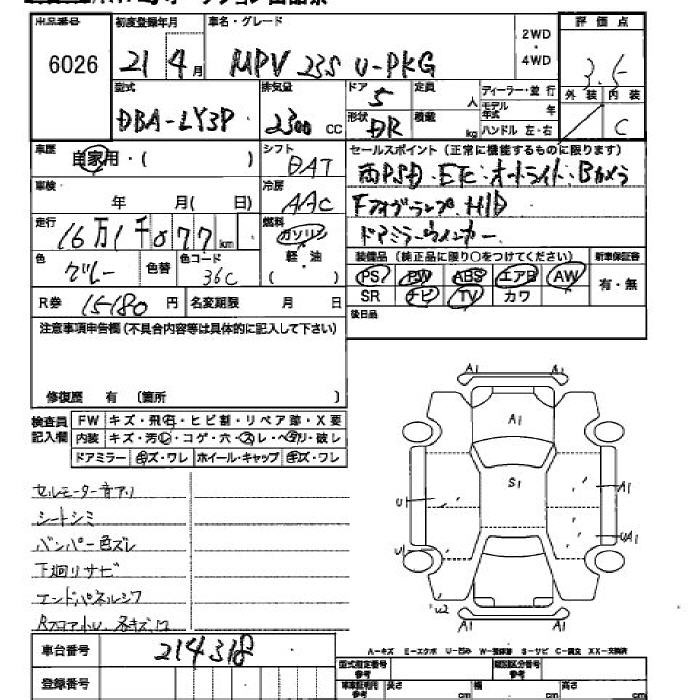 出品番号 初度登録年月 車名・グレード 2WD・4WD 評価点
6026 21 4月 MPV 23S U-PKG 3.5
型式 排気量 ドア 5 定員 人 ディーラー・並行 外装 内装
DBA-LY3P 2300 CC 形状 DR 積載 kg モデル年式 年 C
ハンドル 左・右
車歴 自家用・( ) シフト DAT セールスポイント(正常に機能するものに限ります)
車検 年 月( 日) 冷房 AAC 両PSD. ETC. オートライト. Bカメラ
走行 16万1千077km 燃料 ガソリン Fフォグランプ. HID
軽・油 ( ) ドアミラーウィンカー
色 グレー 色替 色コード 36C 装備品(純正品に限り○をつけてください) 新車保証書
PS PW ABS エアB AW 有・無
R券 15180円 名変期限 月 日 SR ナビ TV カワ
注意事項申告欄(不具合内容等は具体的に記入して下さい) 後日品
修復歴 有 (箇所 )
検査員記入欄 FW キズ・飛石・ヒビ割・リペア跡・X要
内装 キズ・汚レ・コゲ・穴・スレ・ヘタリ・破レ
ドアミラー キズ・ワレ ホイール・キャップ キズ・ワレ
セルモーター音アリ
シートシミ
バンパー色ズレ
下廻リサビ
エンドパネルシワ
A1 A1
A1
S1
U1 A1
U1 UA1
U2
A1 A1
車台番号 214318
登録番号
A-キズ E-エクボ U-凹み W-補修跡 S-サビ C-腐食 XX-交換済
型式指定番号 参考 類別区分番号 参考
車庫証明用 参考 長さ cm 幅 cm 高さ cm